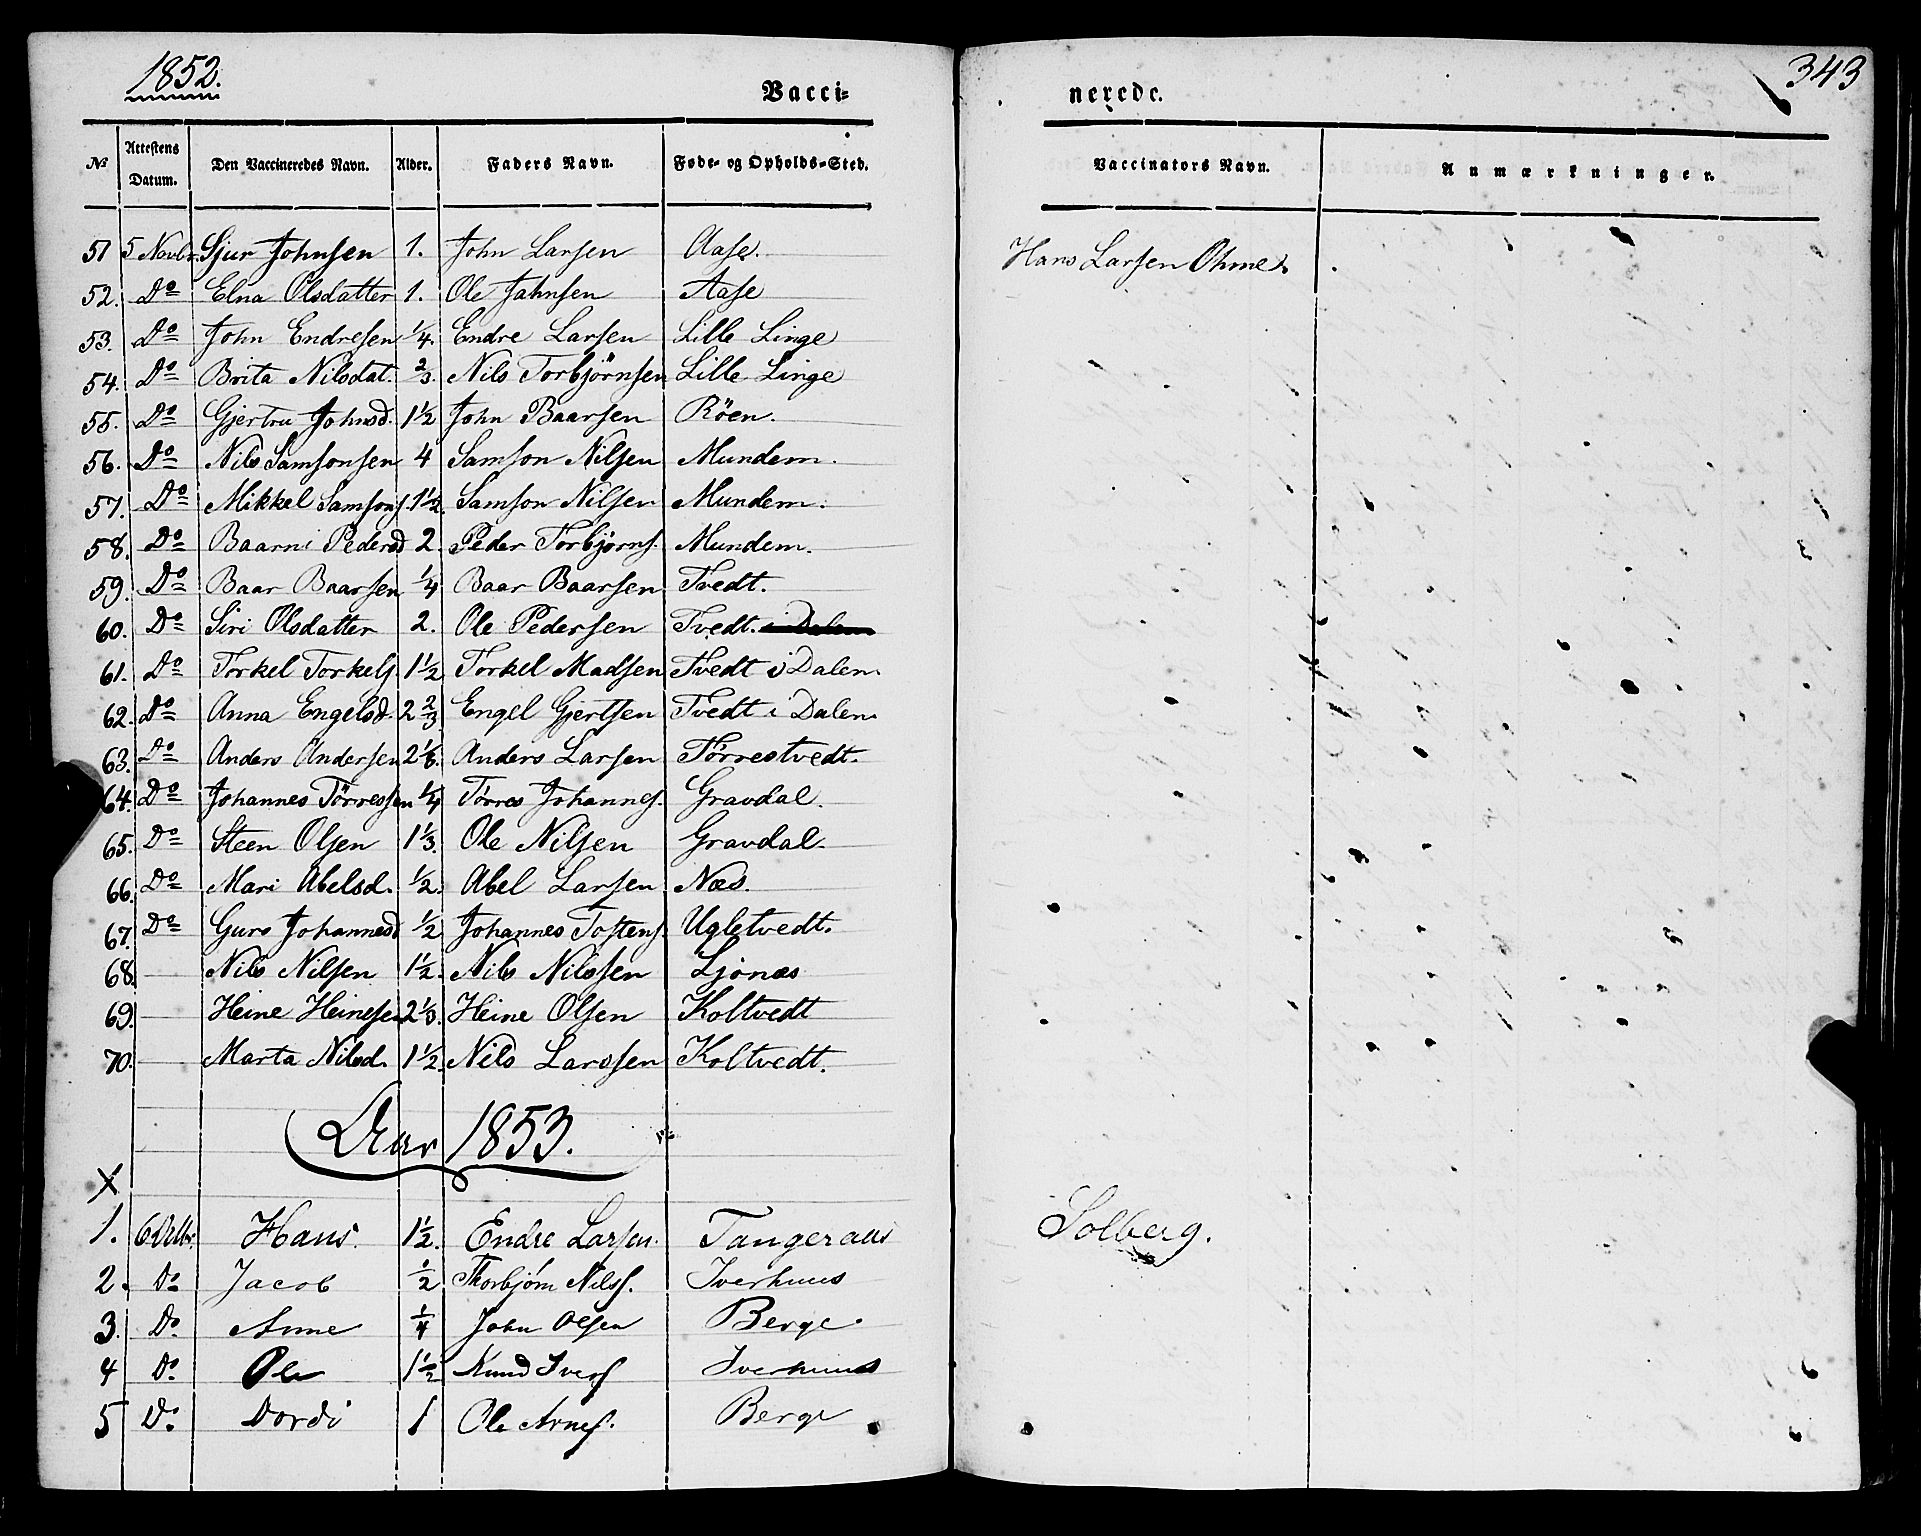 1852.
343
Vacci=
nerede.
No Attestens Datum. Den Vaccineredes Navn. Alder. Faders Navn. Føde- og Opholds-Sted. Vaccinators Navn. Anmærkninger.
51 5 Novbr. Sjur Johnsen 1. John Larsen Aase. Hans Larsen Ohme.
52. Do Elna Olsdatter 1. Ole Jahnsen Aase
53. Do John Endresen 1/4. Endre Larsen Lille Linge
54. Do Brita Nilsdat. 2/3. Nils Torbjörnsen Lille Linge
55. Do Gjertru Johnsd. 1 1/2 John Baarsen Röen.
56. Do Nils Samsonsen 4 Samson Nilsen Mundem.
57. Do Mikkel Samsons. 1 1/2. Samson Nilsen Mundem.
58. Do Baarni Pedersd 2. Peder Torbjörns. Mundem.
59. Do Baar Baarsen 1/4 Baar Baarsen Tvedt.
60. Do Siri Olsdatter 2. Ole Pedersen Tvedt. i Dalem
61. Do Torkel Torkels. 1 1/2 Torkel Madsen Tvedt i Dalen
62. Do Anna Engelsd. 2 2/3 Engel Gjertsen Tvedt i Dalen
63. Do Anders Andersen 2 1/6. Anders Larsen Törrestvedt.
64. Do Johannes Törressen 1/4 Törres Johannes. Gravdal.
65. Do Steen Olsen 1 1/3. Ole Nilsen Gravdal.
66. Do Mari Abelsd. 1/2. Abel Larsen Næs.
67. Do Guro Johannesd 1/2 Johannes Tostens. Ugletvedt.
68. Nils Nilsen 1 1/2. Nils Nilssen Ljönæs
69. Heine Heinesen 2 1/3. Heine Olsen Koltvedt
70. Marta Nilsd. 1 1/2. Nils Larssen Koltvedt.
Aar 1853.
X
1. Hans 1 1/2. Endre Larsen. Tangeraas Solberg.
2. Do Jacob 1/2 Thorbjörn Nilss. Iverhuus
3. Do Anne 1/4 John Olsen Berge.
4 Do Ole 1 1/2 Knud Ivers Iverhuus
5 Do Dordi 1 Ole Arnes. Berge